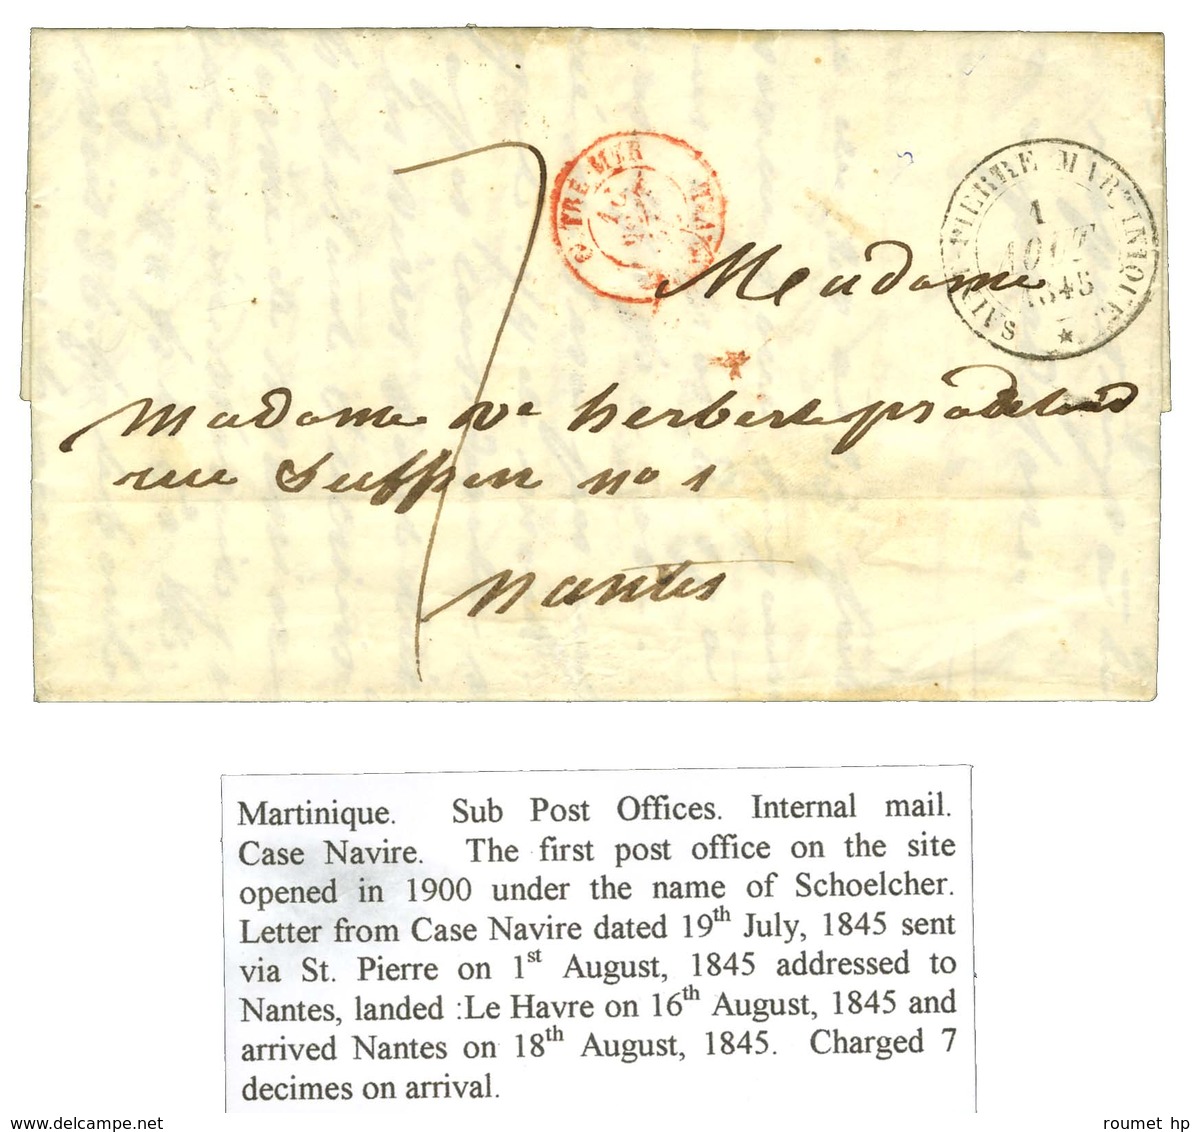 TRE-MER
SAINT-PIERRE MARTINIQUE
1
AOUT
1845
7
Madame
Madame Ve herbert
rue Suffren no 1
Nantes
Martinique. Sub Post Offices. Internal mail.
Case Navire. The first post office on the site
opened in 1900 under the name of Schoelcher.
Letter from Case Navire dated 19th July, 1845 sent
via St. Pierre on 1st August, 1845 addressed to
Nantes, landed :Le Havre on 16th August, 1845 and
arrived Nantes on 18th August, 1845. Charged 7
decimes on arrival.
www.delcampe.net
roumet hp